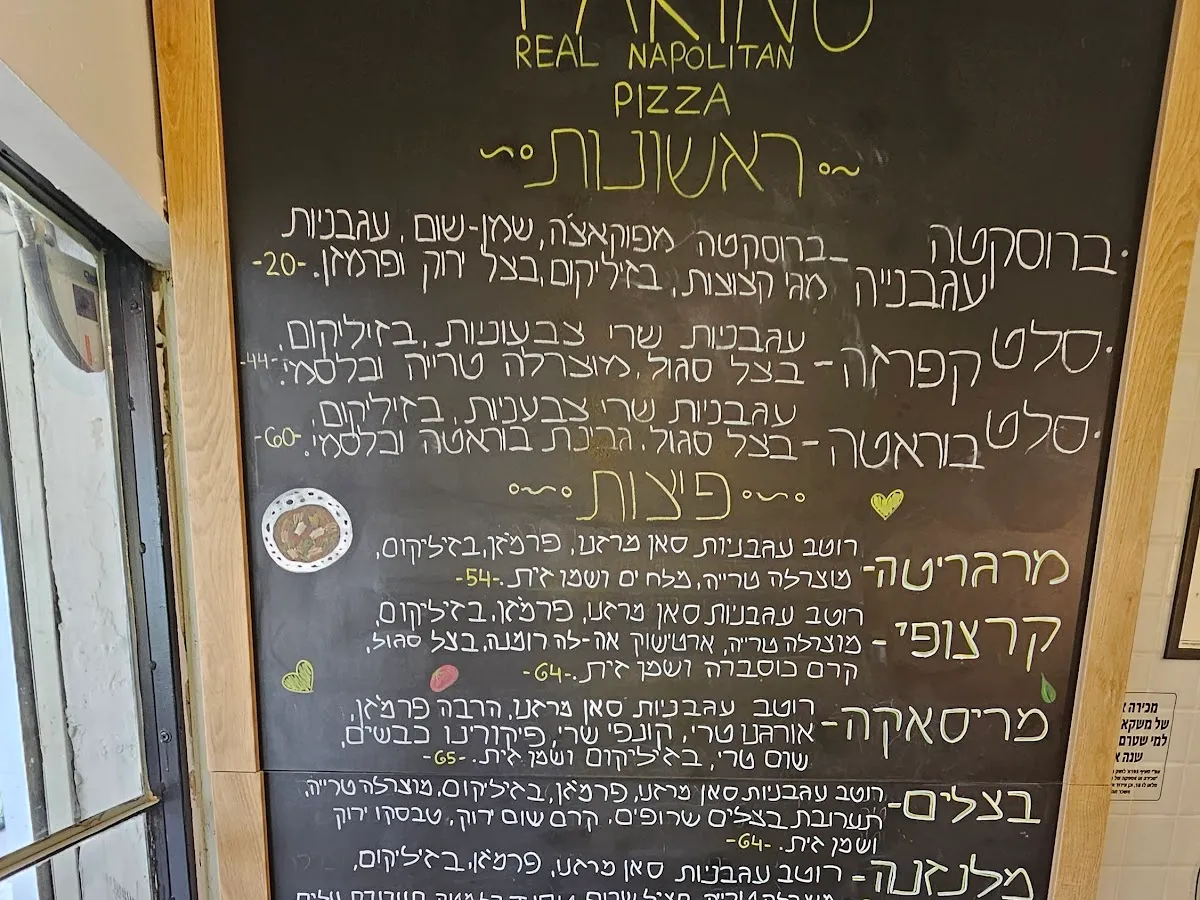 REAL NAPOLITAN
PIZZA
ראשונות
ברוסקטה עגבנייה - ברוסקטה מפוקאצ'ה, שמן-שום, עגבניות
מגי קצוצות, בזיליקום, בצל ירוק ופרמז'ן. -20-
סלט קפרזה - עגבניות שרי צבעוניות, בזיליקום,
בצל סגול, מוצרלה טרייה ובלסמי. -44-
סלט בוראטה - עגבניות שרי צבעניות, בזיליקום,
בצל סגול, גבינת בוראטה ובלסמי. -60-
פיצות
מרגריטה - רוטב עגבניות סאן מרזנו, פרמז'ן, בזיליקום,
מוצרלה טרייה, מלח ים ושמן זית. -54-
קרצופי - רוטב עגבניות סאן מרזנו, פרמז'ן, בזיליקום,
מוצרלה טרייה, ארטישוק אה-לה רומנה, בצל סגול,
קרם כוסברה ושמן זית. -64-
מריסאקה - רוטב עגבניות סאן מרזנו, הרבה פרמז'ן,
אורגנו טרי, קונפי שרי, פיקורינו כבשים,
שום טרי, בזיליקום ושמן זית. -65-
בצלים - רוטב עגבניות סאן מרזנו, פרמז'ן, בזיליקום, מוצרלה טרייה,
תערובת בצלים שרופים, קרם שום ירוק, טבסקו ירוק
ושמן זית. -64-
מלנזנה - רוטב עגבניות סאן מרזנו, פרמז'ן, בזיליקום,
מכירה
של משקא
למי שטרם
שנה